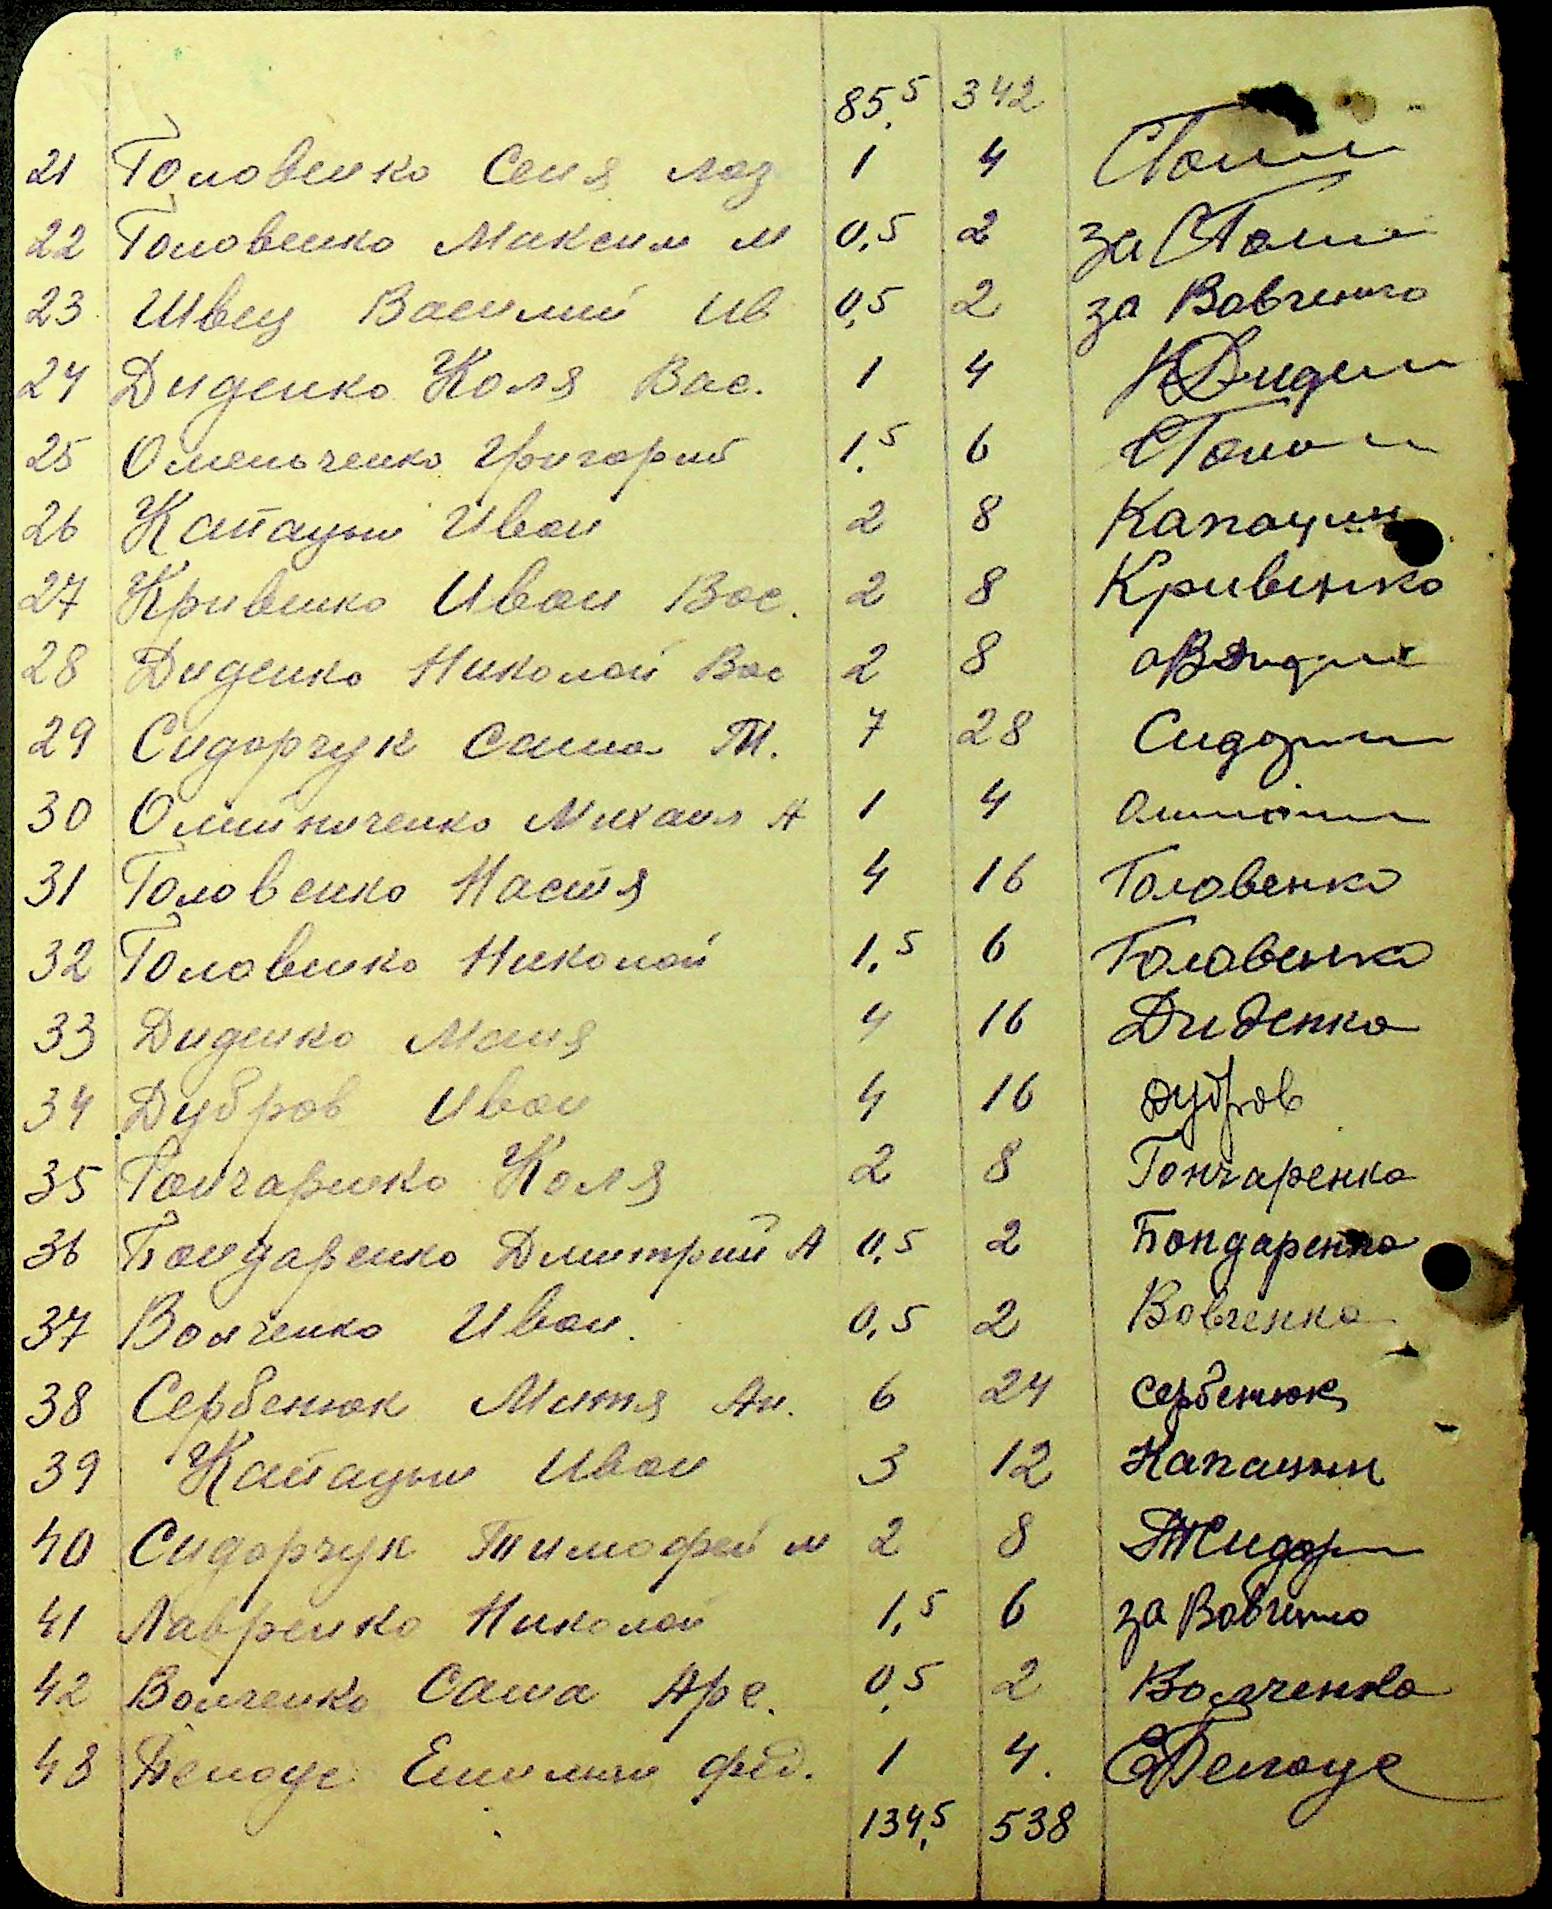 85,5 342
21 Головенко Сеня Лаз 1 4
22 Головенко Максим М 0,5 2 за
23 Швец Василий Ив 0,5 2 за Вовченко
24 Диденко Коля Вас. 1 4
25 Омельченко Григорий 1,5 6
26 Капацын Иван 2 8 Капацин
27 Кривенко Иван Вас. 2 8 Кривенко
28 Диденко Николай Вас 2 8
29 Сидорчук Саша М. 7 28 Сидор
30 Михаил А 1 4
31 Головенко Настя 4 16 Головенко
32 Головенко Николай 1,5 6 Головенко
33 Диденко Маня 4 16 Диденко
34 Дубров Иван 4 16 Дубров
35 Гончаренко Коля 2 8 Гончаренко
36 Бондаренко Дмитрий А 0,5 2 Бондаренко
37 Волченко Иван. 0,5 2 Вовченко
38 Сербенюк Митя Ан. 6 24 Сербенюк
39 Капацын Иван 3 12 Капацын
40 Сидорчук Тимофей М 2 8
41 Лавренко Николай 1,5 6 за Вовченко
42 Волченко Саша Арс. 0,5 2 Волченко
43 Белоус Фед. 1 4. ЕБелоус
134,5 538